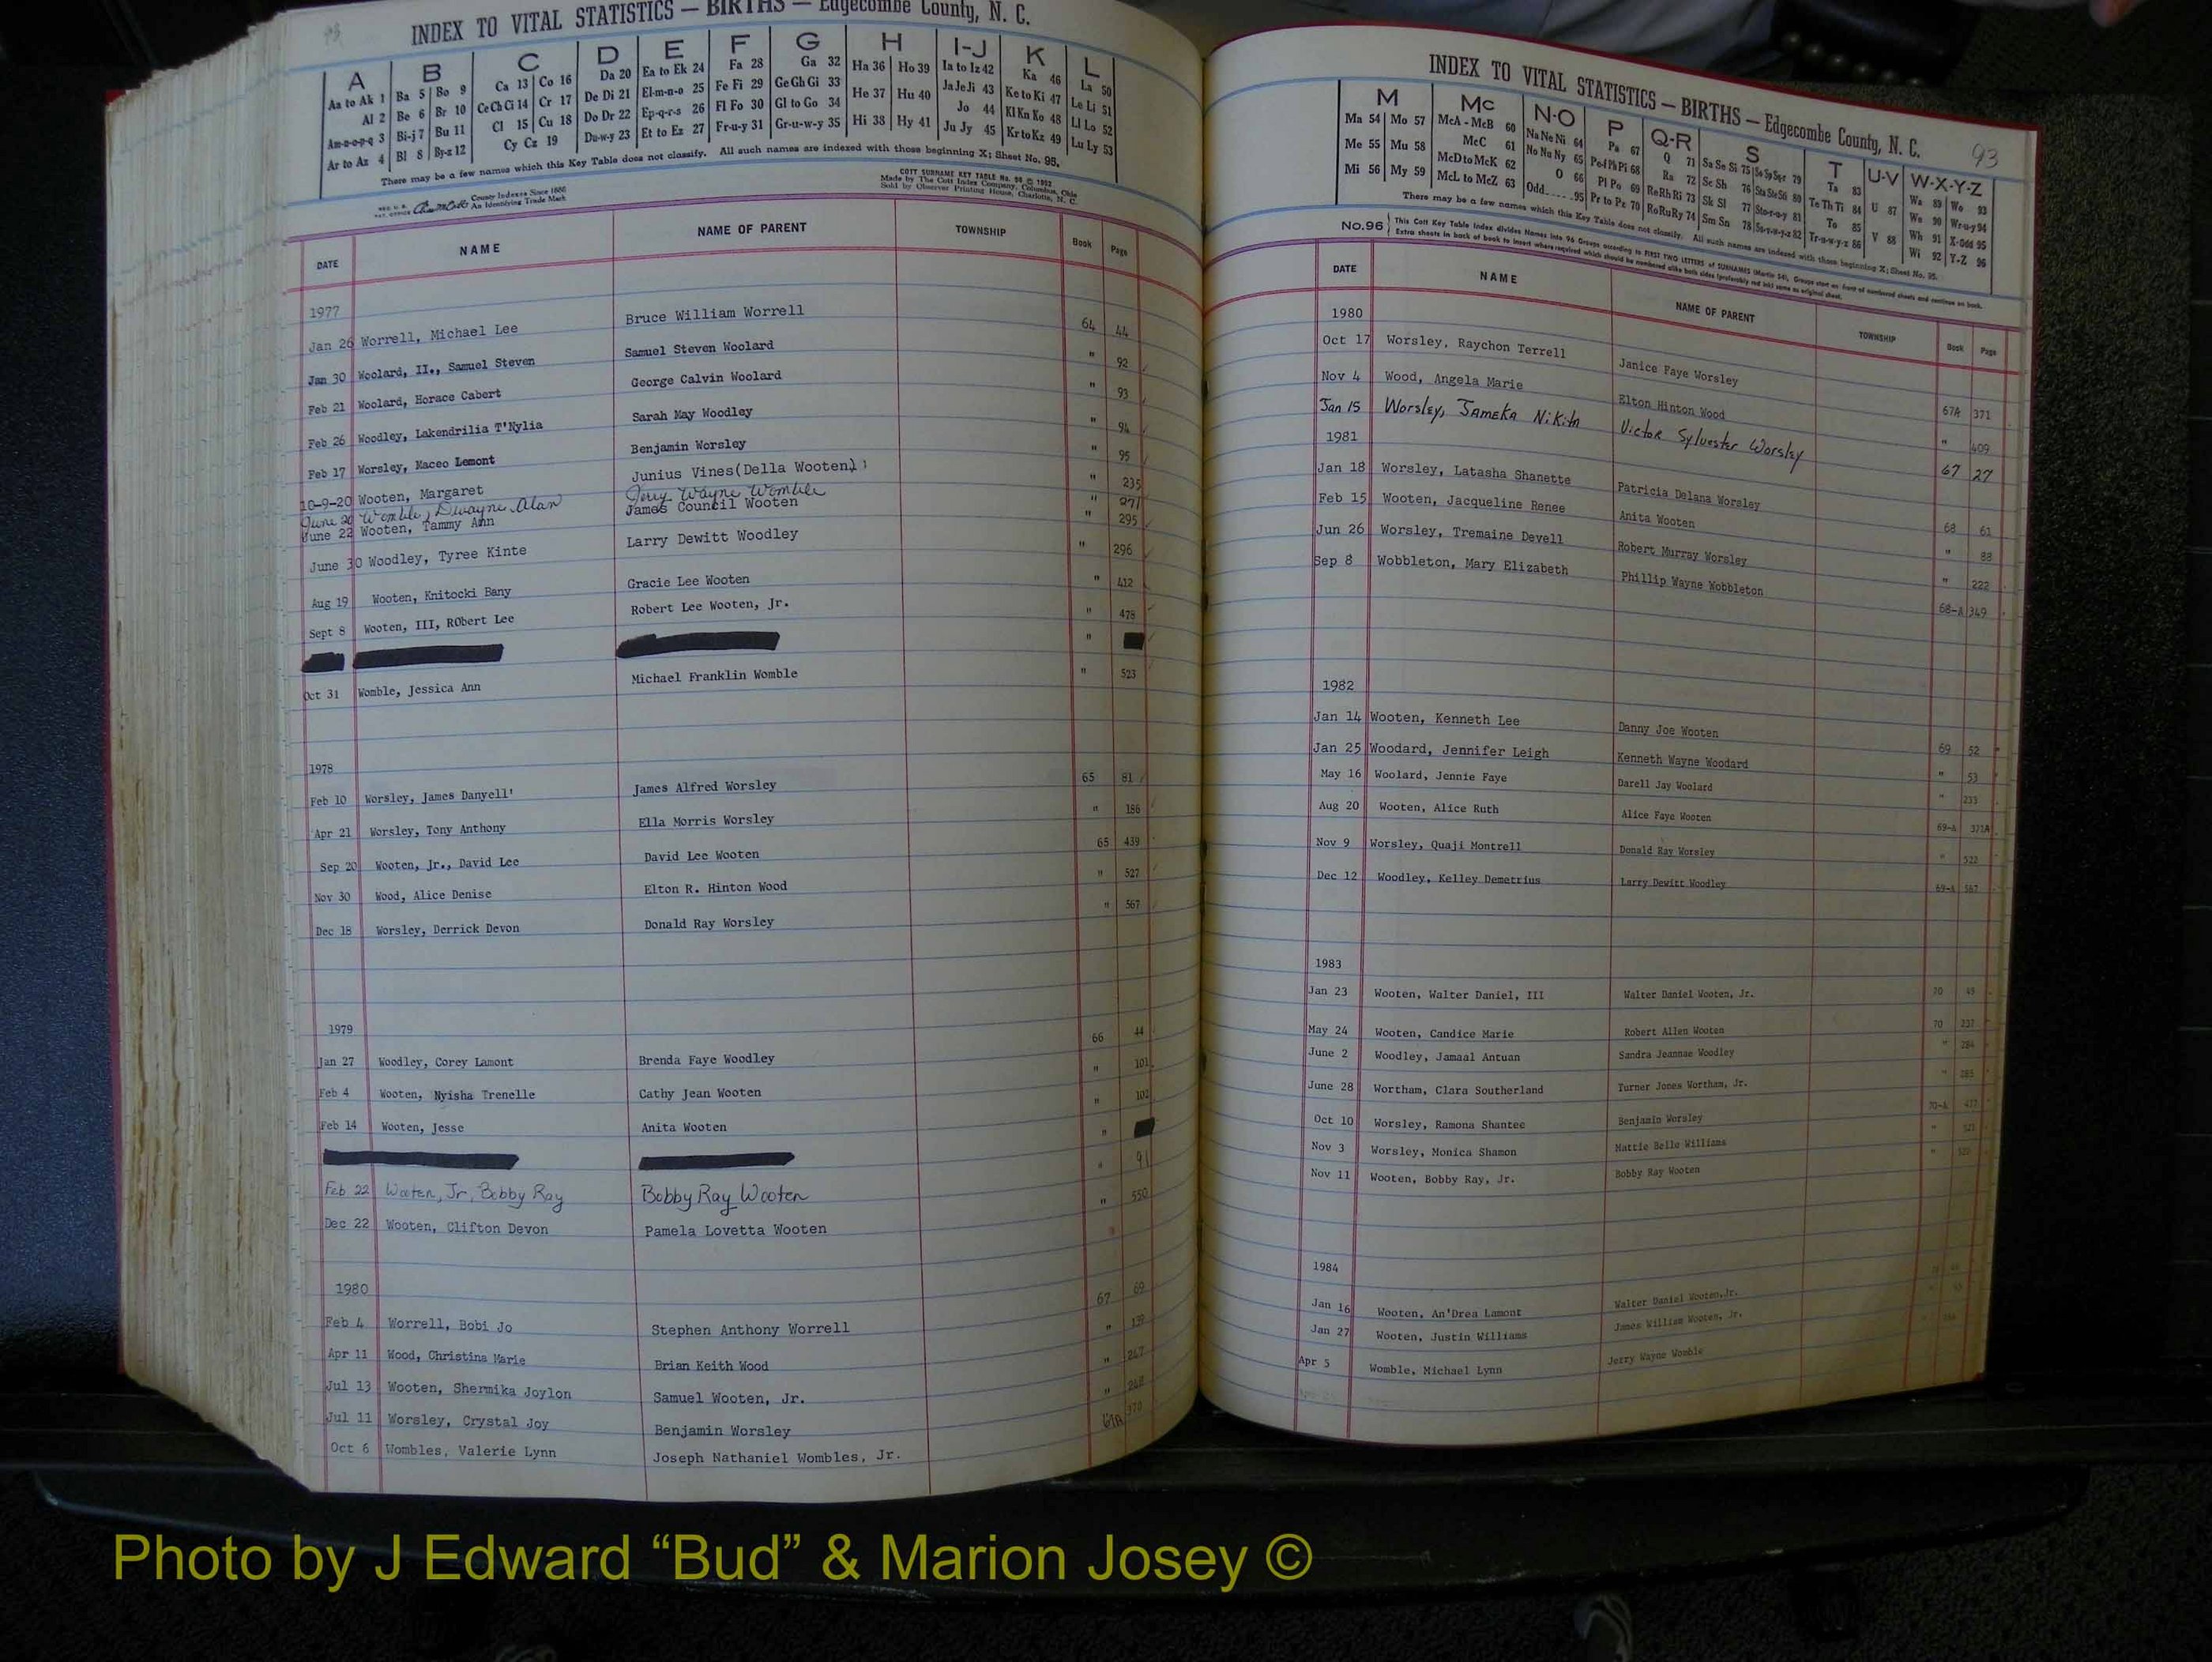 INDEX TO VITAL STATISTICS — BIRTHS — Edgecombe County, N. C.
A B C D E F G H I-J K L
Aa to Ak 1 Ba 5 Bo 9 Ca 13 Co 16 Da 20 Ea to Ek 24 Fa 28 Ga 32 Ha 36 Ho 39 Ia to Iz 42 Ka 46 La 50
Al 2 Be 6 Br 10 Ce Ch Ci 14 Cr 17 De Di 21 El-m-n-o 25 Fe Fi 29 Ge Gh Gi 33 He 37 Hu 40 Ja Je Ji 43 Ke to Ki 47 Le Li 51
Am-n-o-p-q 3 Bi-j 7 Bu 11 Cl 15 Cu 18 Do Dr 22 Ep-q-r-s 26 Fl Fo 30 Gl to Go 34 Hi 38 Hy 41 Jo 44 Kl Kn Ko 48 Ll Lo 52
Ar to Az 4 Bl 8 By-z 12 Cy Cz 19 Du-w-y 23 Et to Ez 27 Fr-u-y 31 Gr-u-w-y 35 Ju Jy 45 Kr to Kz 49 Lu Ly 53
There may be a few names which this Key Table does not classify. All such names are indexed with those beginning X; Sheet No. 95.
County Indexes Since 1888
An Identifying Trade Mark
COTT SURNAME KEY TABLE No. 96 © 1952
Made by The Cott Index Company, Columbus, Ohio
Sold by Observer Printing House, Charlotte, N. C.
DATE NAME NAME OF PARENT TOWNSHIP Book Page
1977
Jan 26 Worrell, Michael Lee Bruce William Worrell 64 44
Jan 30 Woolard, II., Samuel Steven Samuel Steven Woolard " 92
Feb 21 Woolard, Horace Cabert George Calvin Woolard " 93
Feb 26 Woodley, Lakendrilia T'Nylia Sarah May Woodley " 94
Feb 17 Worsley, Maceo Lemont Benjamin Worsley " 95
10-9-20 Wooten, Margaret Junius Vines(Della Wooten) " 235
June 20 Womble, Dwayne Alan Jerry Wayne Womble " 271
June 22 Wooten, Tammy Ann James Council Wooten " 295
June 30 Woodley, Tyree Kinte Larry Dewitt Woodley " 296
Aug 19 Wooten, Knitocki Bany Gracie Lee Wooten " 412
Sept 8 Wooten, III, RObert Lee Robert Lee Wooten, Jr. " 478
"
Oct 31 Womble, Jessica Ann Michael Franklin Womble " 523
1978
Feb 10 Worsley, James Danyell' James Alfred Worsley 65 81
Apr 21 Worsley, Tony Anthony Ella Morris Worsley " 186
Sep 20 Wooten, Jr., David Lee David Lee Wooten 65 439
Nov 30 Wood, Alice Denise Elton R. Hinton Wood " 527
Dec 18 Worsley, Derrick Devon Donald Ray Worsley " 567
1979
Jan 27 Woodley, Corey Lamont Brenda Faye Woodley 66 44
Feb 4 Wooten, Nyisha Trenelle Cathy Jean Wooten " 101
Feb 14 Wooten, Jesse Anita Wooten " 102
"
Feb 22 Wooten, Jr, Bobby Ray Bobby Ray Wooten " 91
Dec 22 Wooten, Clifton Devon Pamela Lovetta Wooten " 550
1980
Feb 4 Worrell, Bobi Jo Stephen Anthony Worrell 67 69
Apr 11 Wood, Christina Marie Brian Keith Wood " 139
Jul 13 Wooten, Shermika Joylon Samuel Wooten, Jr. " 247
Jul 11 Worsley, Crystal Joy Benjamin Worsley " 248
Oct 6 Wombles, Valerie Lynn Joseph Nathaniel Wombles, Jr. 67A 370
INDEX TO VITAL STATISTICS — BIRTHS — Edgecombe County, N. C.
93
M Mc N-O P Q-R S T U-V W-X-Y-Z
Ma 54 Mo 57 McA - McB 60 Na Ne Ni 64 Pa 67 Q 71 Sa Se Si 75 Ta 83 U 87 Wa 89 Wo 93
Me 55 Mu 58 McC 61 No Nu Ny 65 Pe-f Ph Pi 68 Ra 72 Sc Sh 76 Sta Ste Sti 80 Te Th Ti 84 V 88 We 90 Wr-u-y 94
Mi 56 My 59 McD to McK 62 O 66 Pl Po 69 Re Rh Ri 73 Sk Sl 77 Sto-r-u-y 81 To 85 Wh 91 X-Odd 95
McL to McZ 63 Odd 95 Pr to Pz 70 Ro Ru Ry 74 Sm Sn 78 Tr-u-w-y-z 86 Wi 92 Y-Z 96
There may be a few names which this Key Table does not classify. All such names are indexed with those beginning X; Sheet No. 95.
No.96 This Cott Key Table Index divides Names into 96 Groups according to FIRST TWO LETTERS of SURNAMES (Martin 54). Groups start on front of numbered sheets and continue on back.
Extra sheets in back of book to insert where required which should be numbered alike both sides (preferably red ink) same as original sheet.
DATE NAME NAME OF PARENT TOWNSHIP Book Page
1980
Oct 17 Worsley, Raychon Terrell Janice Faye Worsley 67A 371
Nov 4 Wood, Angela Marie Elton Hinton Wood " 409
Jan 15 Worsley, Jameka Nikita Victor Sylvester Worsley 67 27
1981
Jan 18 Worsley, Latasha Shanette Patricia Delana Worsley 68 61
Feb 15 Wooten, Jacqueline Renee Anita Wooten " 88
Jun 26 Worsley, Tremaine Devell Robert Murray Worsley " 222
Sep 8 Wobbleton, Mary Elizabeth Phillip Wayne Wobbleton 68-A 349
1982
Jan 14 Wooten, Kenneth Lee Danny Joe Wooten 69 52
Jan 25 Woodard, Jennifer Leigh Kenneth Wayne Woodard " 53
May 16 Woolard, Jennie Faye Darell Jay Woolard " 233
Aug 20 Wooten, Alice Ruth Alice Faye Wooten 69-A 371A
Nov 9 Worsley, Quaji Montrell Donald Ray Worsley " 522
Dec 12 Woodley, Kelley Demetrius Larry Dewitt Woodley 69-A 567
1983
Jan 23 Wooten, Walter Daniel, III Walter Daniel Wooten, Jr. 70 49
May 24 Wooten, Candice Marie Robert Allen Wooten 70 237
June 2 Woodley, Jamaal Antuan Sandra Jeannae Woodley " 284
June 28 Wortham, Clara Southerland Turner Jones Wortham, Jr. " 285
Oct 10 Worsley, Ramona Shantee Benjamin Worsley 70-A
Nov 3 Worsley, Monica Shamon Mattie Belle Williams "
Nov 11 Wooten, Bobby Ray, Jr. Bobby Ray Wooten "
1984
Jan 16 Wooten, An'Drea Lamont Walter Daniel Wooten, Jr.
Jan 27 Wooten, Justin Williams James William Wooten, Jr.
Apr 5 Womble, Michael Lynn Jerry Wayne Womble
Photo by J Edward “Bud” & Marion Josey ©